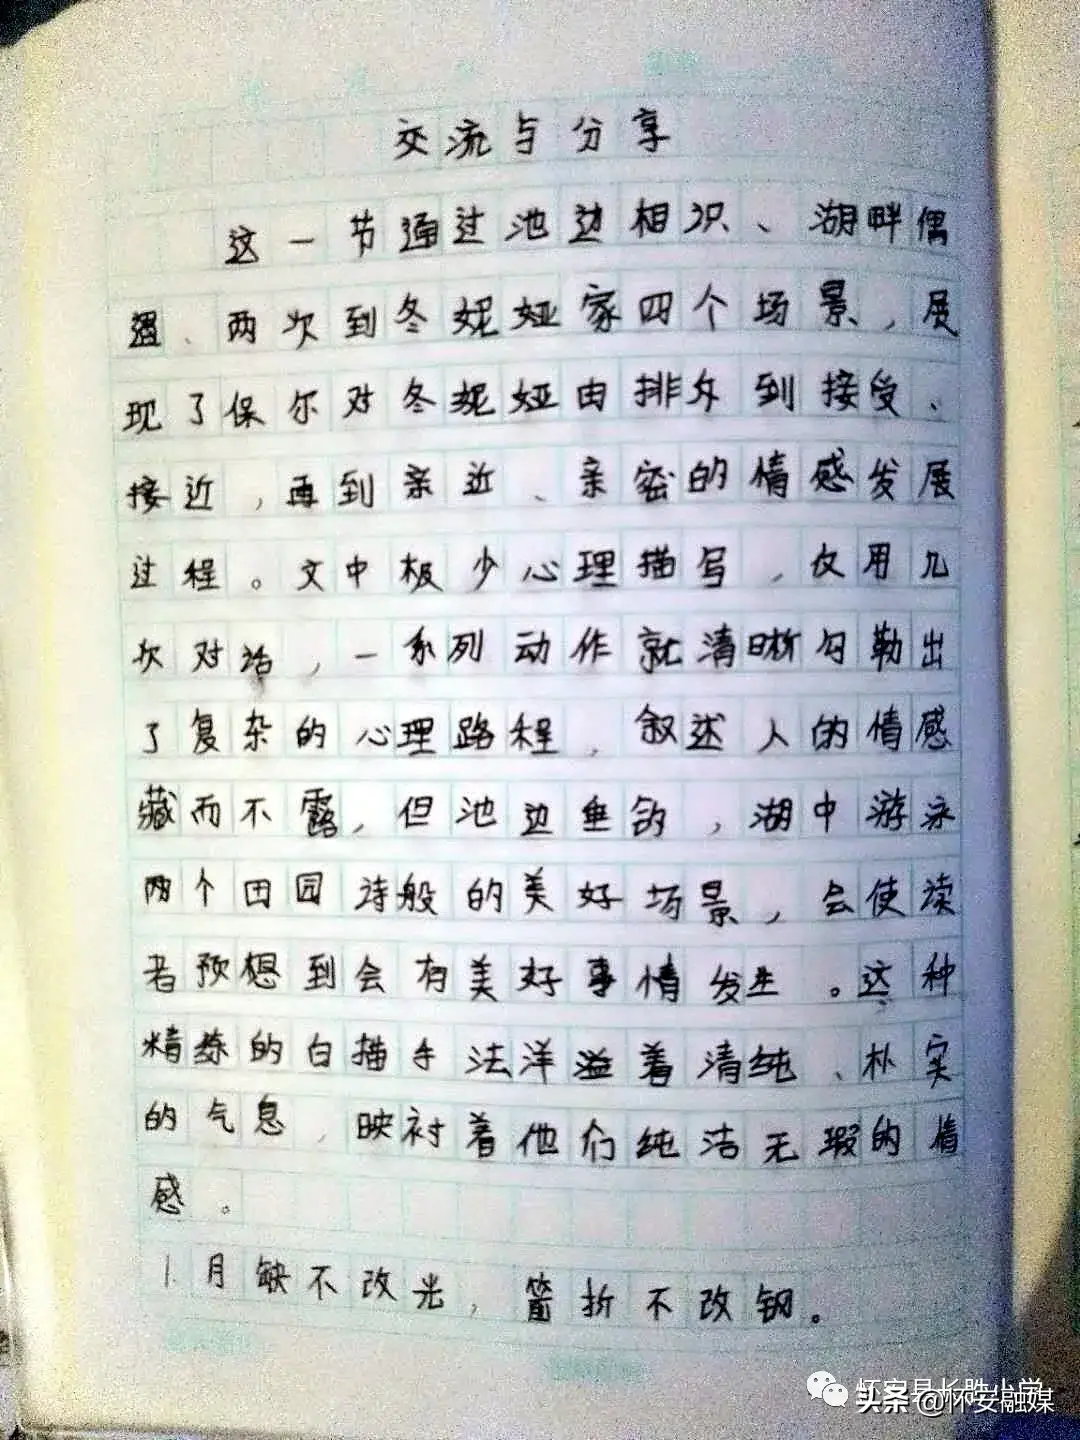 交流与分享
这一节通过池边相识、湖畔偶
遇、两次到冬妮娅家四个场景,展
现了保尔对冬妮娅由排外到接受、
接近,再到亲近、亲密的情感发展
过程。文中极少心理描写,仅用几
次对话,一系列动作就清晰勾勒出
了复杂的心理路程,叙述人的情感
藏而不露,但池边垂钓,湖中游泳
两个田园诗般的美好场景,会使读
者预想到会有美好事情发生。这种
精练的白描手法洋溢着清纯、朴实
的气息,映衬着他们纯洁无瑕的情
感。
1.月缺不改光,箭折不改钢。
怀安县长胜小学
头条@怀安融媒